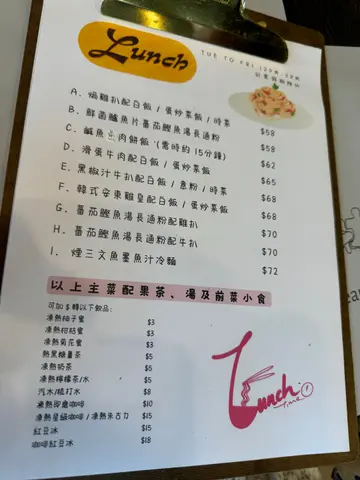 Lunch
TUE TO FRI 12PM-5PM
A. 焗雞扒配白飯 / 蛋炒菜飯 / 時菜 $58
B. 鮮菌鱸魚片蕃茄鰹魚湯長通粉 $58
C. 鹹魚肉餅飯 (需時約15分鐘) $62
D. 滑蛋牛肉配白飯 / 蛋炒菜飯 $65
E. 黑椒汁牛扒配白飯 / 意粉 / 時菜 $68
F. 韓式安東雞皇配白飯 / 蛋炒菜飯 $68
G. 蕃茄鰹魚湯長通粉配雞扒 $70
H. 蕃茄鰹魚湯長通粉配牛扒 $70
I. 煙三文魚墨魚汁冷麵 $72
以上主菜配果茶、湯及前菜小食
可加$轉以下飲品:
凍熱柚子蜜 $3
凍熱柑桔蜜 $3
凍熱菊花蜜 $3
熱黑糖薑茶 $5
凍熱奶茶 $5
凍熱檸檬茶/水 $5
汽水/梳打水 $8
凍熱即磨咖啡 $10
凍熱星級咖啡 / 凍熱朱古力 $15
紅豆冰 $15
咖啡紅豆冰 $18
Lunch
time